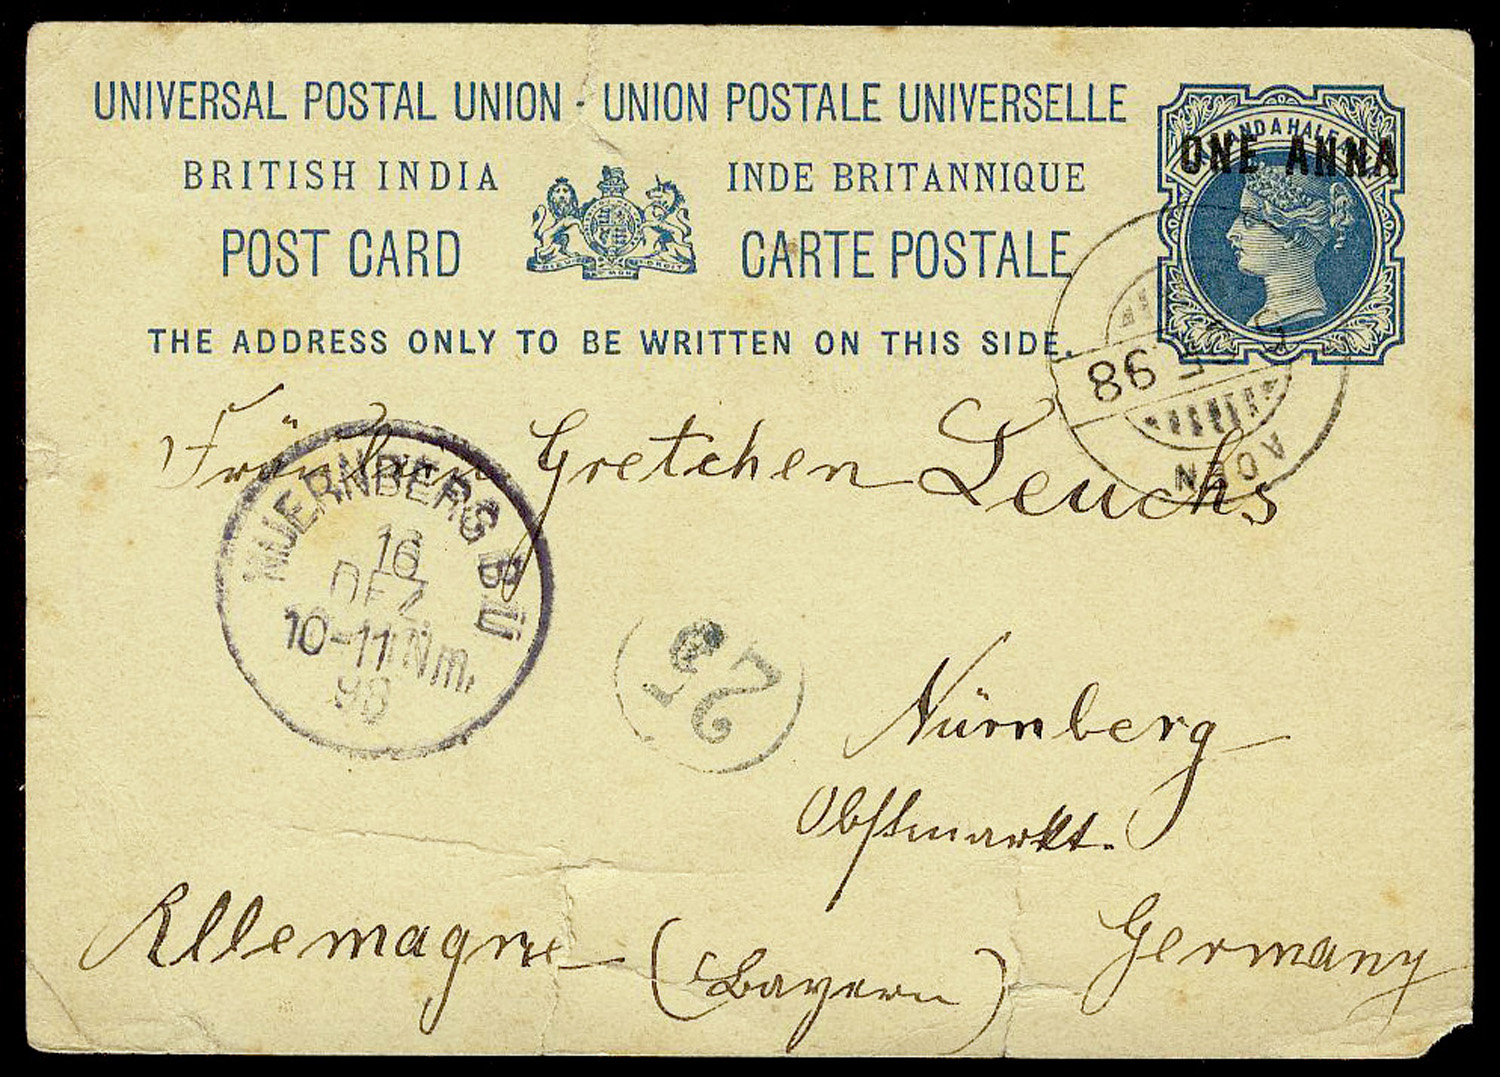 UNIVERSAL POSTAL UNION - UNION POSTALE UNIVERSELLE
BRITISH INDIA INDE BRITANNIQUE
POST CARD CARTE POSTALE
THE ADDRESS ONLY TO BE WRITTEN ON THIS SIDE.
AND A HALF
ONE ANNA
98
ADEN
Fräulein Gretchen Leuchs
NUERNBERG B.Ü
16
DEZ
10-11 Nm.
98
25
Nürnberg
Obstmarkt.
Allemagne (Bayern) Germany